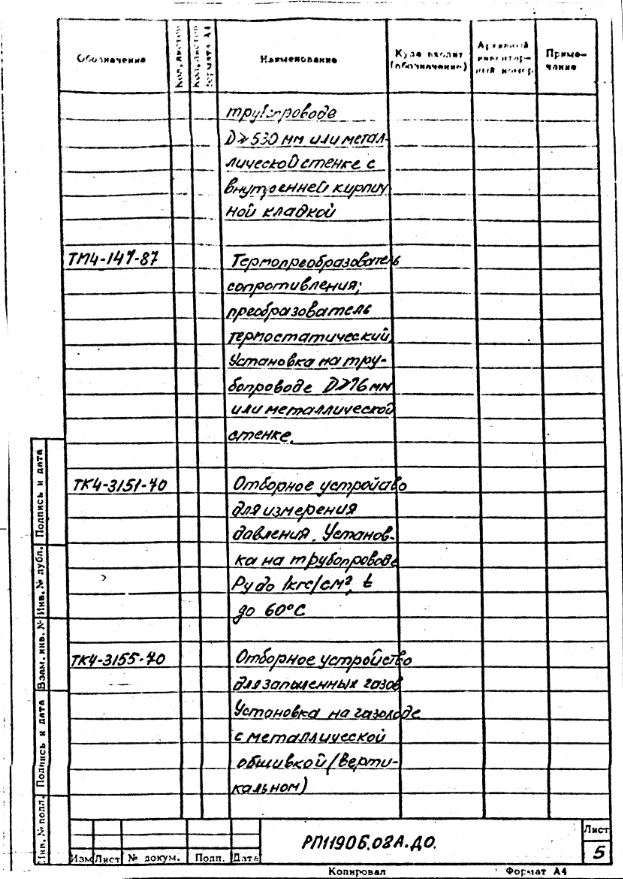 Обозначение
Кол. листов
Кол. листов формата А4
Наименование
Куда входит (обозначение)
Архивный инвентарный номер
Примечание
трубопроводе
D≥530 мм или метал-
лической стенке с
внутренней кирпич
ной кладкой
ТМ4-147-87
Термопреобразователь
сопротивления;
преобразователь
термостатический
Установка на тру-
бопроводе D≥76 мм
или металлической
стенке.
ТК4-3151-70
Отборное устройство
для измерения
давления. Установ-
ка на трубопроводе
Ру до 1кгс/см², t
до 60°С
ТК4-3155-70
Отборное устройство
для запыленных газов
Установка на газоходе
с металлической
обшивкой (верти-
кальном)
Подпись и дата
Инв. № дубл.
Взам. инв. №
Подпись и дата
Инв. № подл.
Изм Лист № докум. Подп. Дата
РП11906.02А.Д0.
Лист
5
Копировал
Формат А4